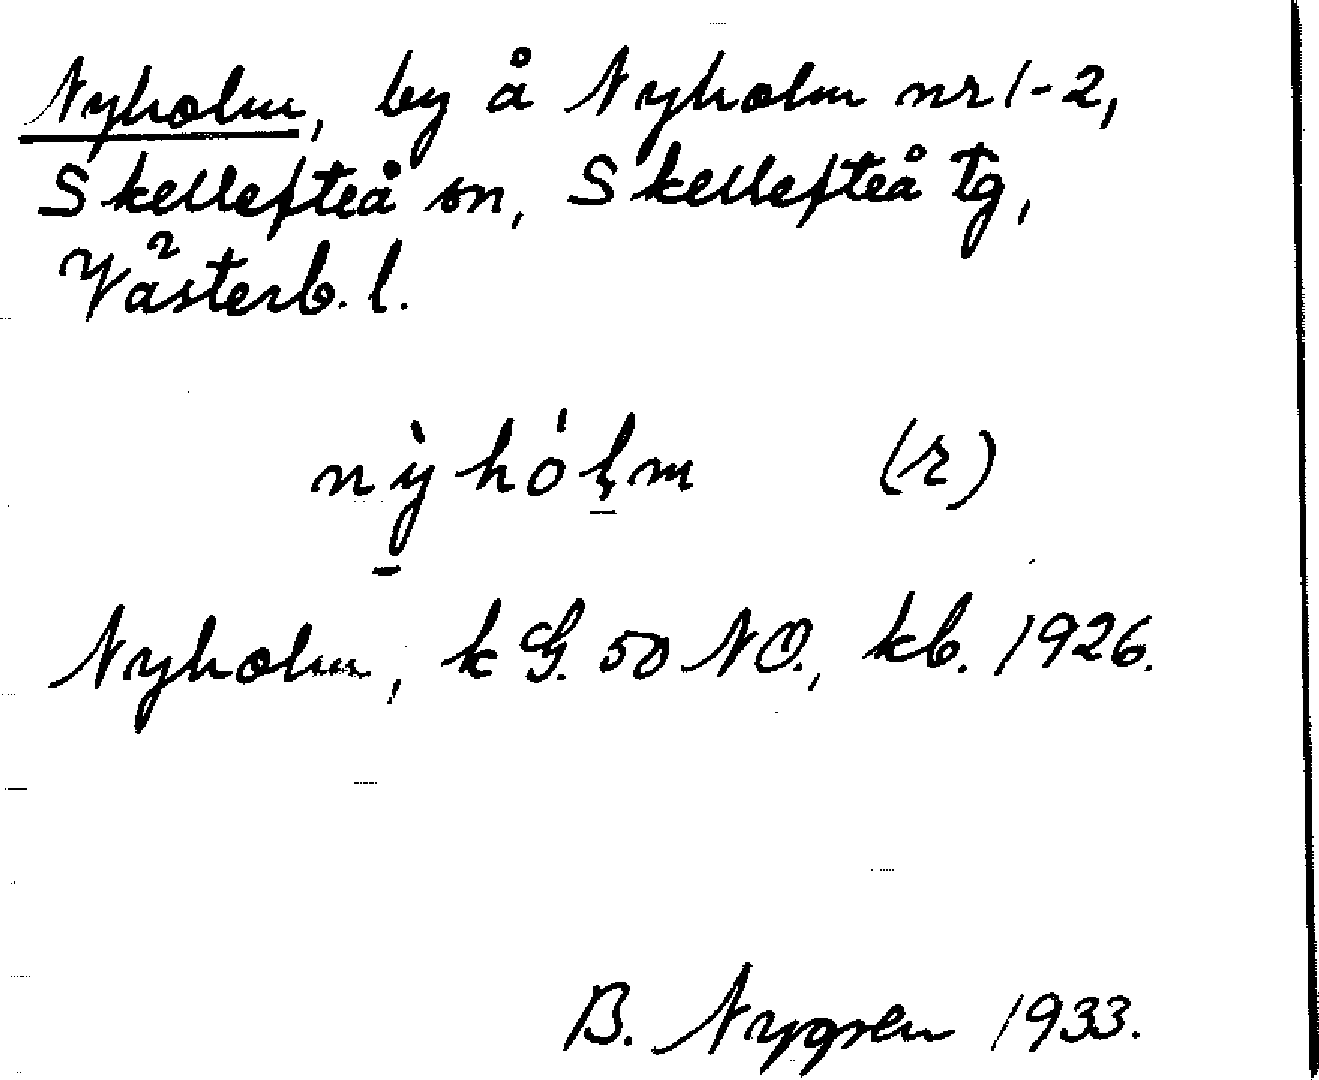 Nyholm, by å Nyholm nr 1-2,
Skellefteå sn, Skellefteå tg,
Västerb. l.
nỳhóḷm (r)
Nyholm, k G. 50 NO., kb. 1926.
B. Nygren 1933.